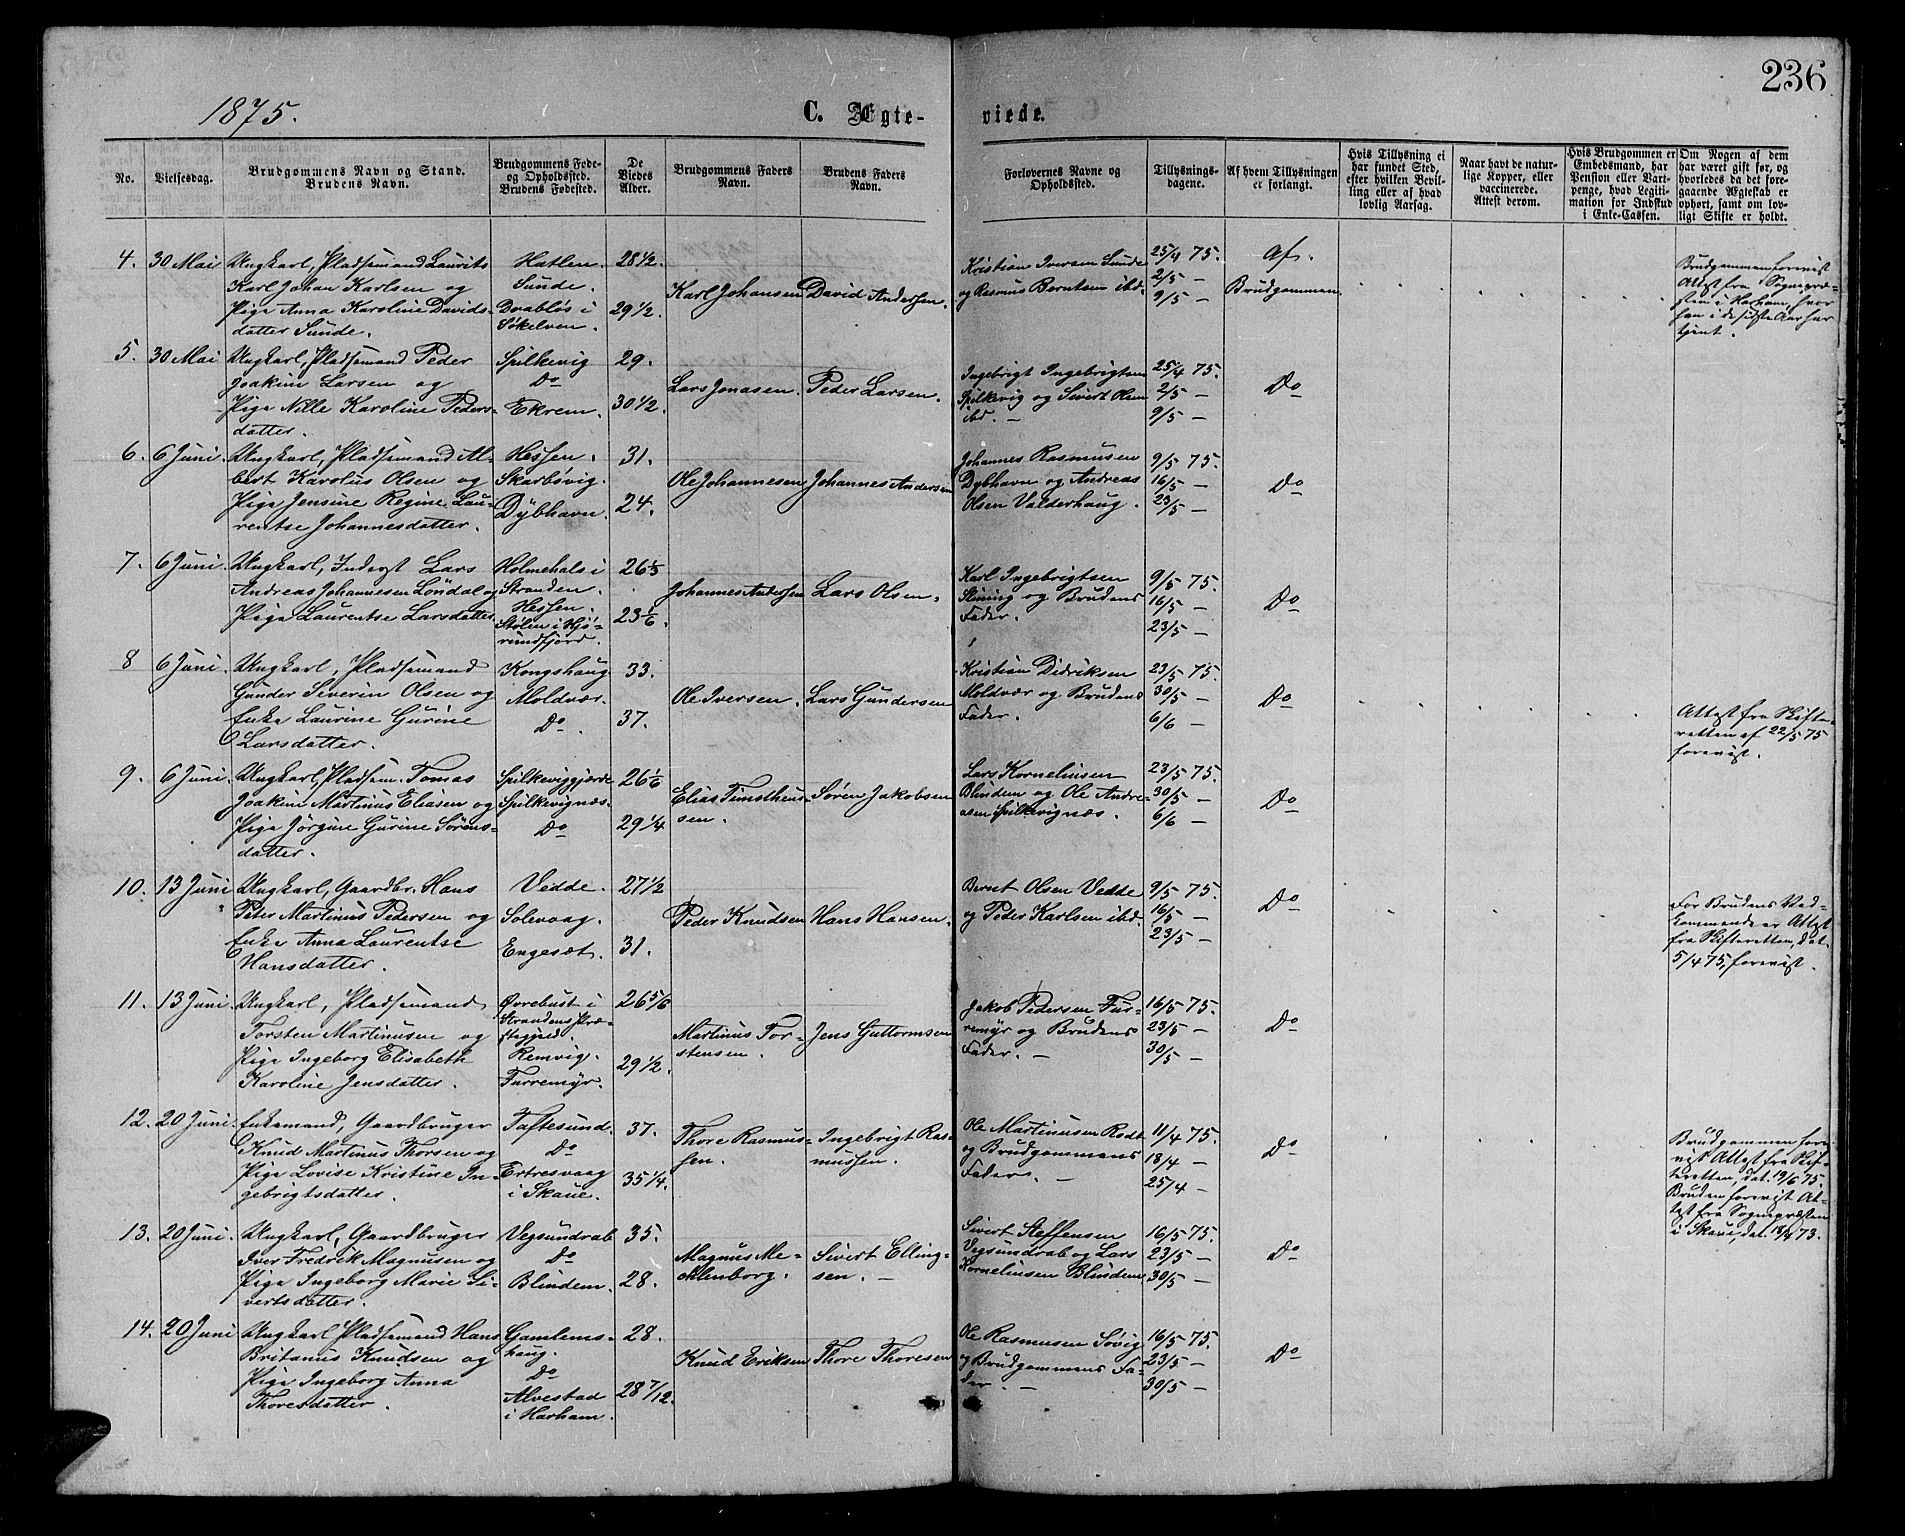 236
1875.
C. Ægte-
viede.
No.
Vielsesdag.
Brudgommens Navn og Stand.
Brudens Navn.
Brudgommens Føde-
og Opholdssted.
Brudens Fødested.
De
Viedes
Alder.
Brudgommens Faders
Navn.
Brudens Faders
Navn.
Forlovernes Navne og
Opholdssted.
Tillysnings-
dagene.
Af hvem Tillysningen
er forlangt.
Hvis Tillysning ei
har fundet Sted,
efter hvilken Bevil-
ling eller af hvad
lovlig Aarsag.
Naar havt de natur-
lige Kopper, eller
vaccinerede.
Attest derom.
Hvis Brudgommen er
Embedsmand, har
Pension eller Vart-
penge, hvad Legiti-
mation for Indskud
i Enke-Cassen.
Om Nogen af dem
har været gift før, og
hvorledes da det fore-
gaaende Ægteskab er
ophørt, samt om lov-
ligt Skifte er holdt.
4.
30 Mai
Ungkarl, Pladsemand Laurits
Karl Johan Karlsen og
Pige Anna Karoline Davids-
datter Sunde.
Hatlen.
Sunde.
Drabløs i
Søkelven.
28 1/2.
29 1/2.
Karl Johansen
David Andersen.
Kristian Iversen Sunde
og Rasmus Berntsen ibd.
25/4 75.
2/5 —
9/5 —
Af
Brudgommen.
Brudgommen forevist
Attest fra Sognepræ-
sten i Harham, hvor
han i de sidste Aar har
tjent.
5.
30 Mai
Ungkarl, Pladsemand Peder
Joakim Larsen og
Pige Nille Karoline Peders-
datter.
Spilkevig
Do
Ekrem.
29.
30 1/2.
Lars Jonasen.
Peder Larsen.
Ingebrigt Ingebrigtsen
Spilkevig og Sivert Olsen
ibd. —
25/4 75.
2/5 —
9/5 —
Do
6.
6 Juni.
Ungkarl, Pladsemand Al-
bert Karolius Olsen og
Pige Jensine Regine Lau-
rentse Johannesdatter.
Hessen.
Skarbøvig.
Dybhavn.
31.
24.
Ole Johannesen
Johannes Andersen
Johannes Rasmusen
Dybhavn og Andreas
Olsen Valderhaug.
9/5 75.
16/5 —
23/5 —
Do
7.
6 Juni.
Ungkarl, Inderst Lars
Andreas Johannesen Løndal og
Pige Laurentse Larsdatter
Holmehals i
Stranden.
Hessen.
Stølen i Hjø-
rundfjord.
26 1/3
23 1/6.
Johannes Andersen
Lars Olsen.
Karl Ingebrigtsen
Slinning og Brudens
Fader.
9/5 75.
16/5 —
23/5 —
Do
8
6 Juni.
Ungkarl, Pladsemand
Gunder Severin Olsen og
Enke Laurine Gurine
Larsdatter.
Kongshaug
Moldvær.
Do.
33.
37.
Ole Iversen.
Lars Gundersen
Kristian Didriksen
Moldvær og Brudens
Fader.
23/5 75.
30/5 —
6/6 —
Do
Attest fra Skifte-
retten af 22/5 75
forevist.
9.
6 Juni.
Ungkarl, Pladsem. Tomas
Joakim Martinus Eliasen og
Pige Jørgine Gurine Sørens-
datter.
Spilkeviggjærde
Spilkevignæs.
Do
26 1/6
29 1/4
Elias Timotheus-
sen.
Søren Jakobsen
Lars Kornelinsen
Blindem og Ole Andre-
asen Spilkevignæs.
23/5 75.
30/5 —
6/6 —
Do
10.
13 Juni
Ungkarl, Gaardbr. Hans
Peter Martinus Pedersen og
Enke Anna Laurentse
Hansdatter.
Vedde.
Solevaag.
Engesæt.
27 1/2
31.
Peder Knudsen
Hans Hansen.
Bernt Olsen Vedde
og Peder Karlsen ibd.
9/5 75.
16/5 —
23/5 —
Do
For Brudens Ved-
kommende er Attest
fra Skifteretten, dat.
5/4 75, forevist.
11.
13 Juni
Ungkarl, Pladsemand
Torsten Martinusen og
Pige Ingeborg Elisabeth
Karoline Jensdatter.
Øvrebust i
Strandens Præ-
stegjeld.
Remvig.
Furremyr.
26 5/6
29 1/2.
Martinus Tor-
stensen.
Jens Guttormsen
Jakob Pedersen Fur-
remyr og Brudens
Fader. —
16/5 75.
23/5 —
30/5 —
Do
12.
20 Juni.
Enkemand, Gaardbruger
Knud Martinus Thorsen og
Pige Lovise Kristine In-
gebrigtsdatter.
Toftesund.
Do
Ertresvaag
i Skaue.
37.
35 1/4.
Thore Rasmus-
sen.
Ingebrigt Ras-
mussen.
Ole Martinusen Rødt
og Brudgommens
Fader. —
11/4 75.
18/4 —
25/4 —
Do
Brudgommen fore-
vist Attest fra Skif-
teretten, dat. 19/6 75.
Bruden forevist At-
test fra Sognepræsten
i Skaue, dat. 18/4 73.
13.
20 Juni.
Ungkarl, Gaardbruger
Iver Fredrik Magnusen og
Pige Ingeborg Marie Si-
vertsdatter.
Vegsundrab
Do
Blindem.
35.
28.
Magnus Me-
chlenborg.
Sivert Elling-
sen. —
Sivert Steffensen
Vegsundrab og Lars
Kornelinsen Blindem
16/5 75.
23/5 —
30/5 —
Do
14.
20 Juni
Ungkarl, Pladsemand Hans
Britanus Knudsen og
Pige Ingeborg Anna
Thoresdatter.
Gamlems-
haug.
Do
Alvestad
i Harham.
28.
28 7/12.
Knud Eriksen
Thore Thoresen
Ole Rasmusen Søvig
og Brudgommens Fa-
der. —
16/5 75.
23/5 —
30/5 —
Do